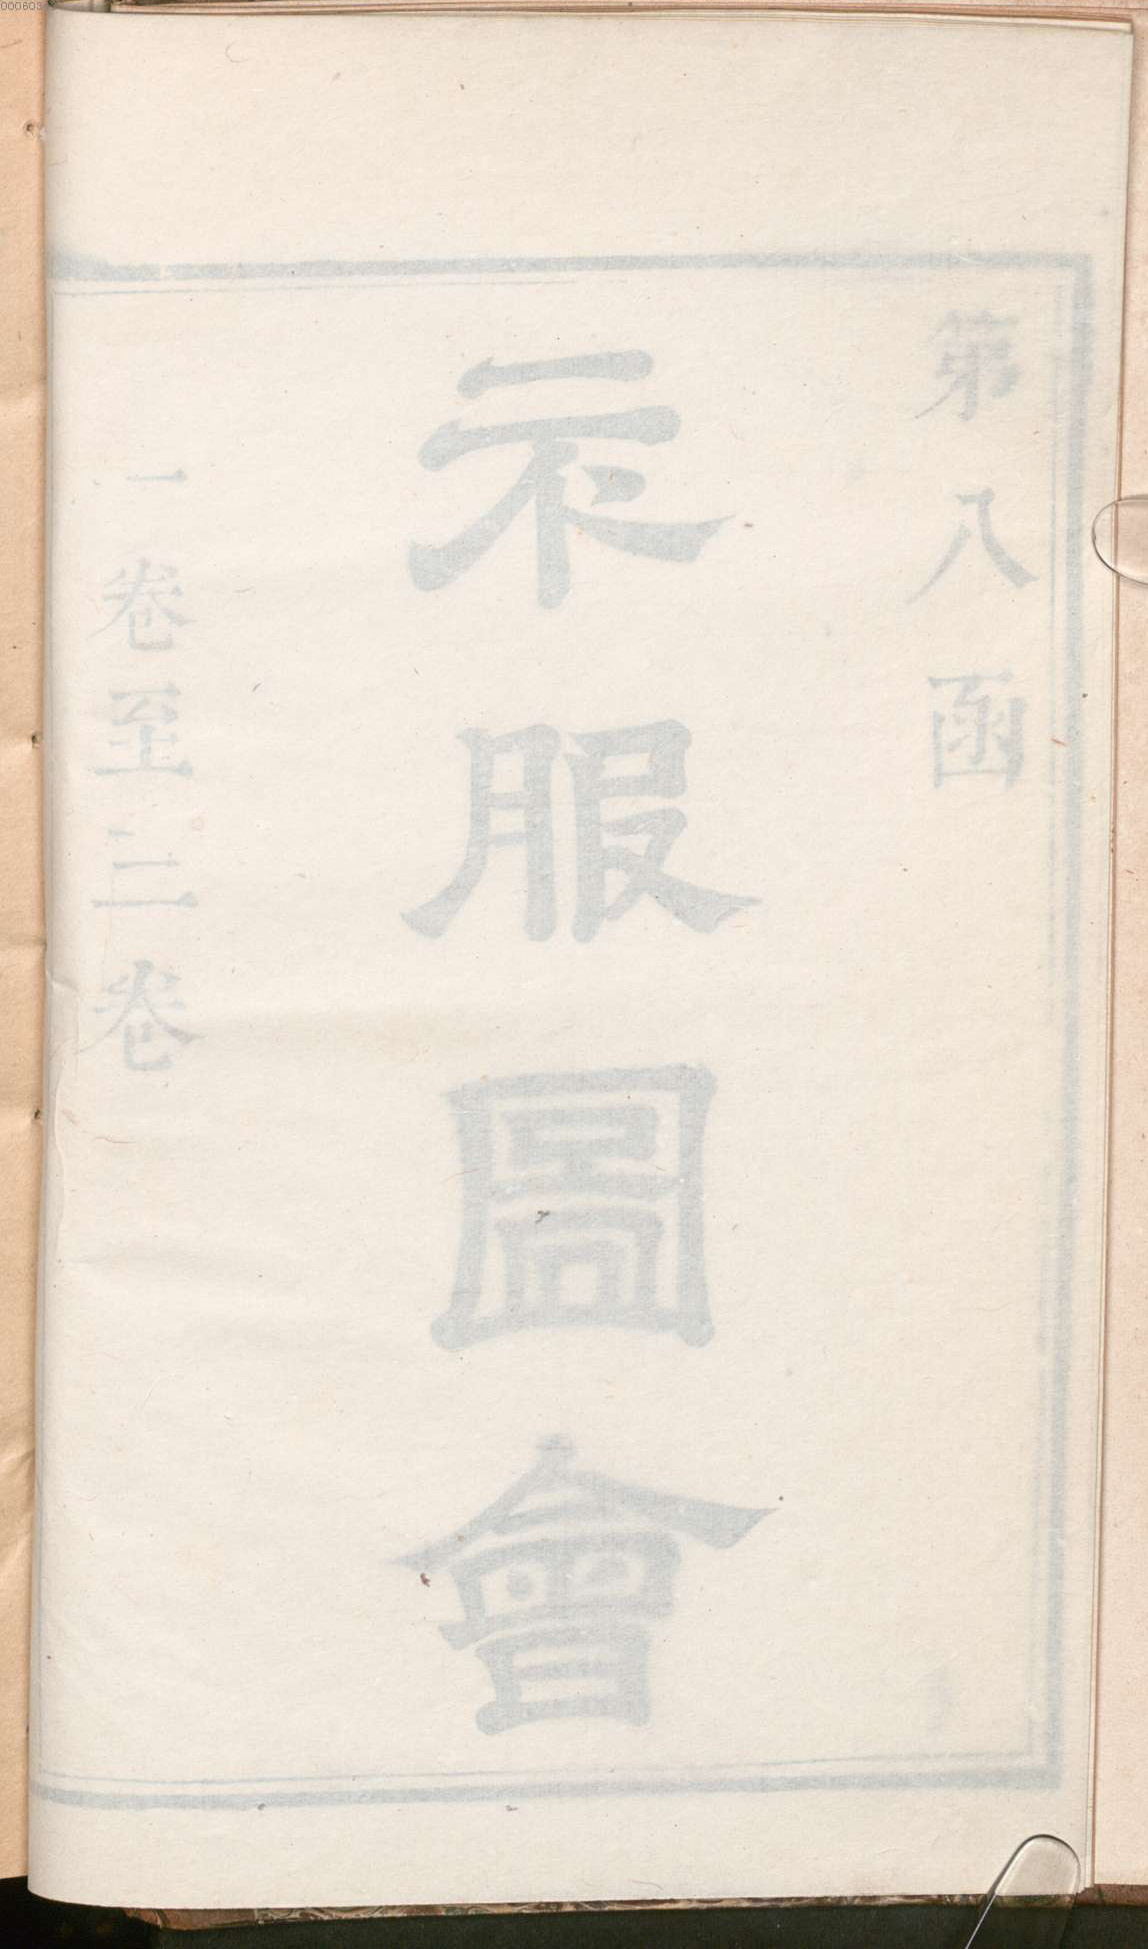 第八函
衣服圖會
一卷至三卷